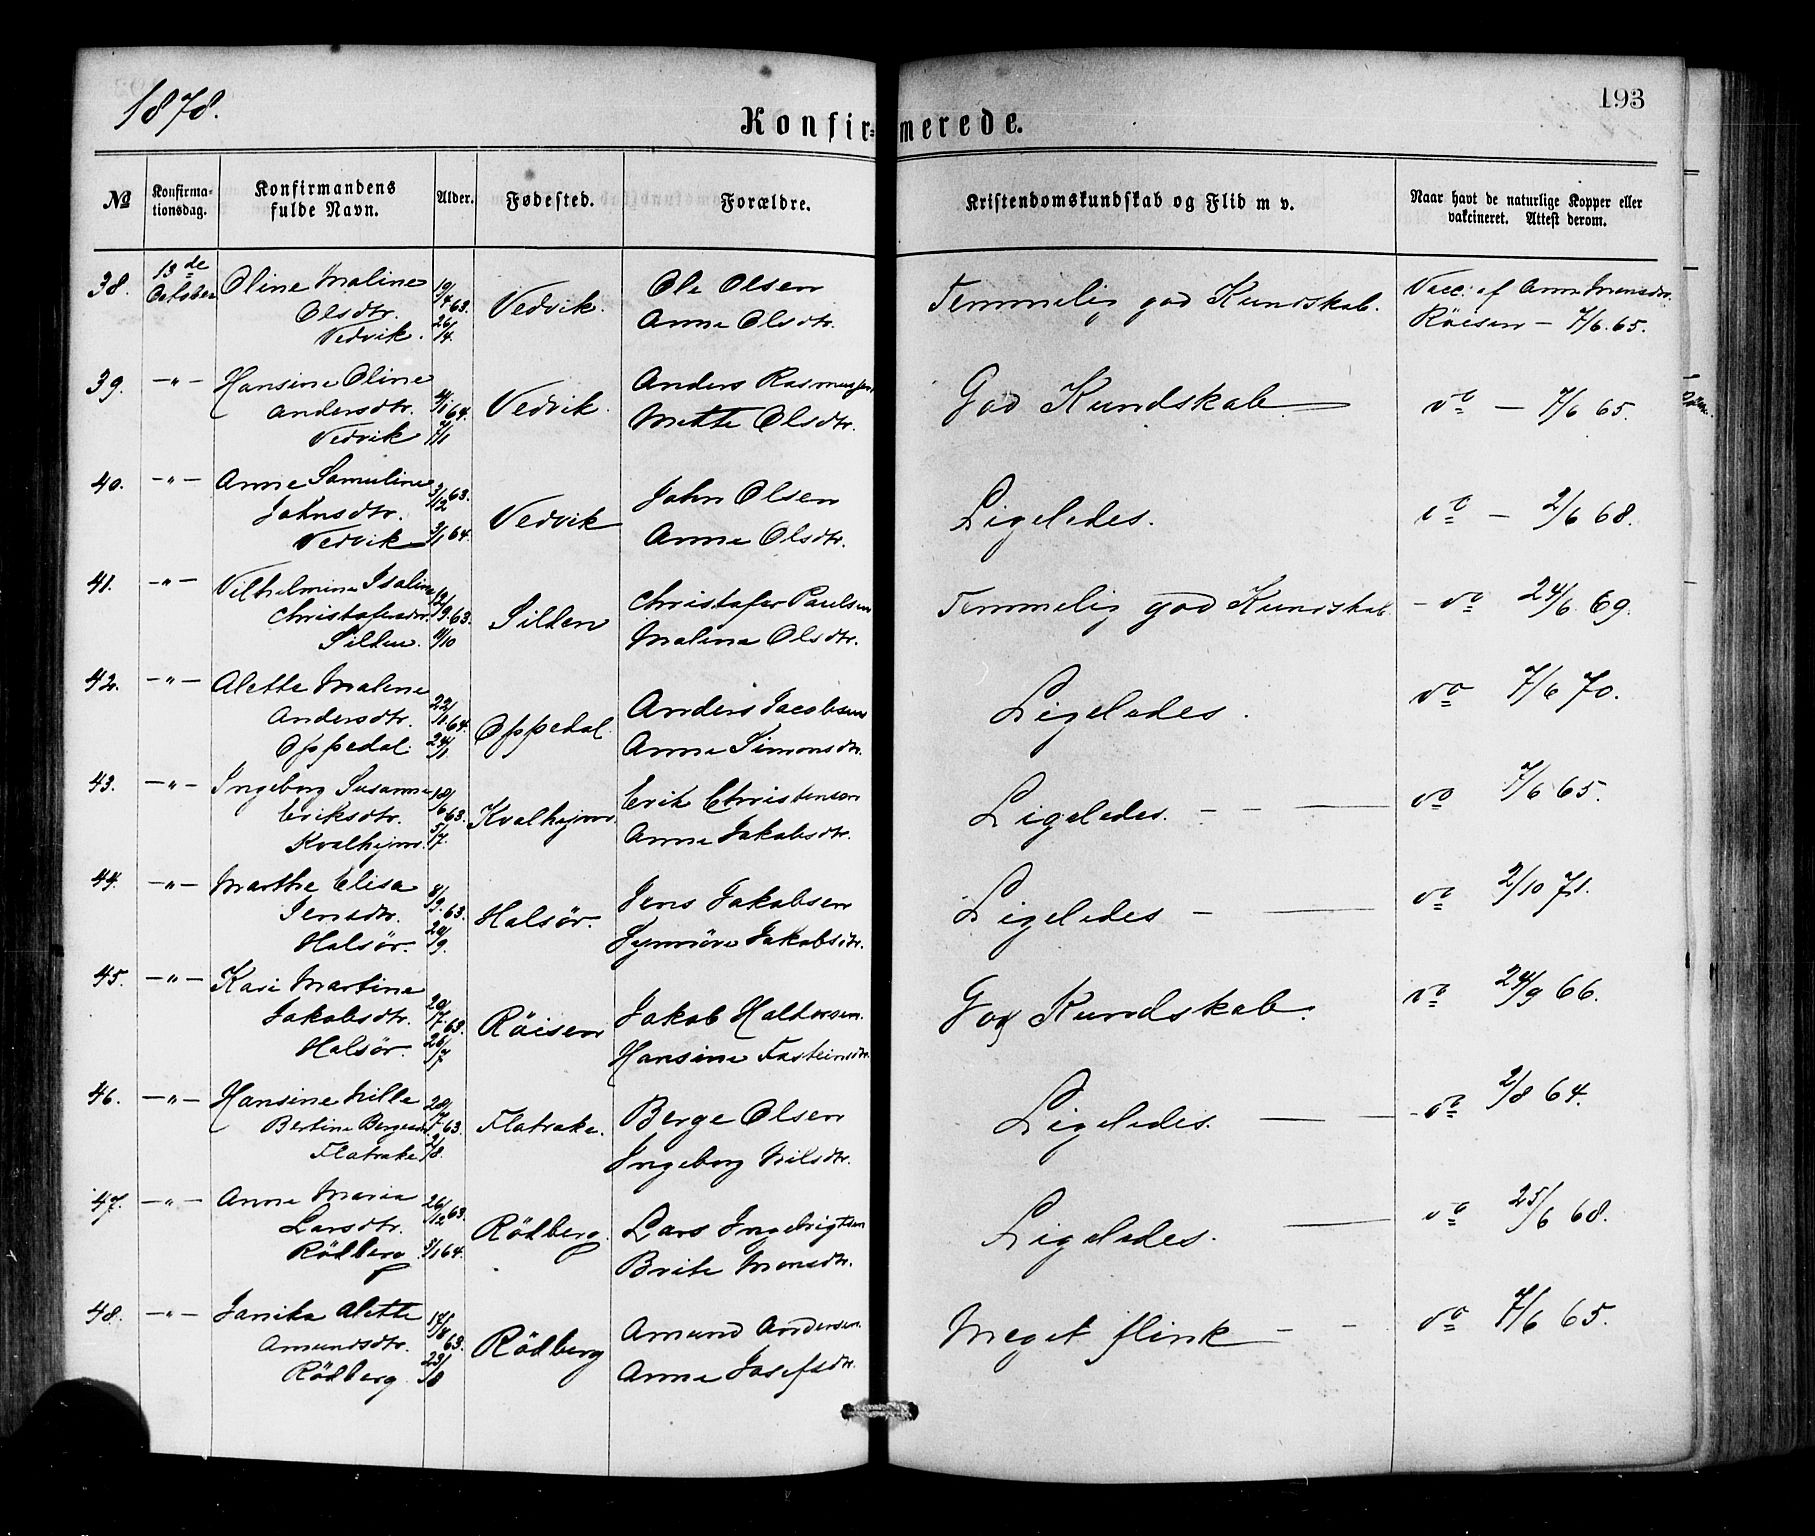 1878.
193
Konfir=merede.
No
Konfirma-
tionsdag.
Konfirmandens
fulde Navn.
Alder.
Fødested.
Forældre.
Kristendomskundskab og Flid m v.
Naar havt de naturlige Kopper eller
vakcineret. Attest derom.
38. 13de October Oline Maline 19/4 63. Vedvik. Ole Olsen Temmelig god Kundskab. Vacc: af Anne Monsdtr.
Olsdtr. 26/4. Anne Olsdtr. Röesen — 7/6. 65.
Vedvik.
39. —"— Hansine Oline Vedvik. Anders Rasmussen God Kundskab. do — 7/6 65.
Andersdtr. 64. Mette Olsdtr.
Vedvik
40. —"— Anne Samuline 3/12 63. Vedvik John Olsen Ligeledes. do — 2/6 68.
Johnsdtr. Anne Olsdtr.
Vedvik 3/1 64.
41. —"— Vilhelmine Isaline 12/9. 63. Silden Christofer Paulsen Temmelig god Kundskab — do 24/6. 69.
Christofersdtr. Malena Olsdtr.
Silden. 11/10
42. —"— Alette Malene 22/1 64. Oppedal. Anders Jacobsen Ligeledes. do 7/6 70.
Andersdtr. 24/1 Anne Simonsdtr.
Oppedal
43. —"— Ingeborg Susanne 18/6 63. Kvalhejm. Erik Christensen Ligeledes. do 7/6 65.
Eriksdtr. 5/7. Anne Jakobsdtr.
Kvalhejm.
44. —"— Marthe Elisa 8/9. 63. Halsör. Jens Jakobsen Ligeledes — do 2/10 71.
Jensdtr. 20/9. Synnöve Jakobsdtr.
Halsör.
45. —"— Kari Martina 20/7. 63. Röisen Jakob Haldorsen. God Kundskab. do 24/9 66.
Jakobsdtr. 26/7 Hansine Fasteinsdtr.
Halsör.
46. —"— Hansine Nille 28/7 63. Flatrake. Berge Olsen Ligeledes. — do 2/8 64.
Bertine Bergesdtr 2/8. Ingeborg Nilsdtr.
Flatrake
47. —"— Anne Maria 26/12 63. Rödberg. Lars Ingebrigtsen Ligeledes. do 25/6 68.
Larsdtr. Brite Monsdtr.
Rödberg 3/1 64.
48. —"— Janika Alette 17/8 63. Rödberg Amund Andersen. Meget flink do 7/6 65.
Amundsdtr. 23/8 Anne Josefsdtr.
Rödberg